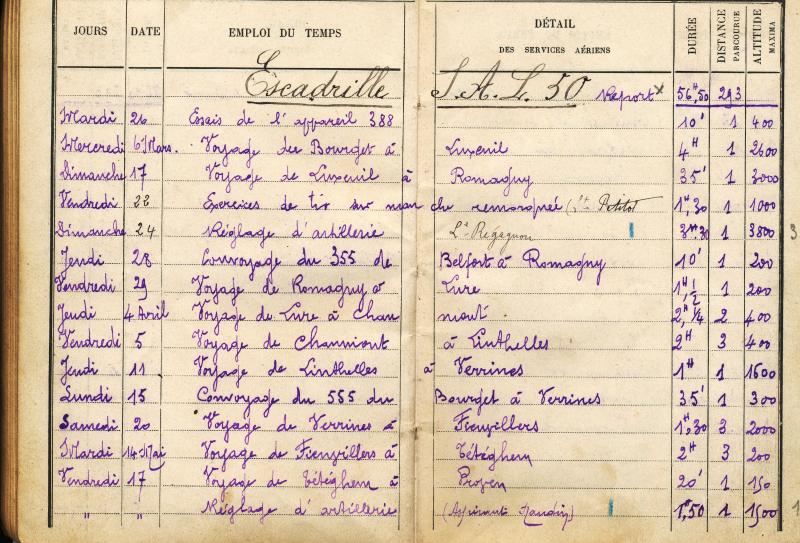 JOURS DATE EMPLOI DU TEMPS DÉTAIL DES SERVICES AÉRIENS DURÉE DISTANCE PARCOURUE ALTITUDE MAXIMA
Escadrille S.A.L. 50 Report 56H,50 293
Mardi 26 Essais de l'appareil 388 10' 1 400
Mercredi 6 Mars. Voyage du Bourget à Luxeuil 4H 1 2600
Dimanche 17 Voyage de Luxeuil à Romagny 35' 1 3000
Vendredi 22 Exercices de tir sur manche remorquée (Lt Petitot 1H,30 1 1000
Dimanche 24 Réglage d'artillerie 3H,30 1 3800 3
Jeudi 28 Convoyage du 355 de Belfort à Romagny 10' 1 200
Vendredi 29 Voyage de Romagny à Lure 1H,1/2 1 200
Jeudi 4 Avril Voyage de Lure à Chaumont 2H,1/4 2 400
Vendredi 5 Voyage de Chaumont à Linthelles 2H 3 400
Jeudi 11 Voyage de Linthelles à Verrines 1H 1 1600
Lundi 15 Convoyage du 555 du Bourget à Verrines 35' 1 300
Samedi 20 Voyage de Verrines à Fienvillers 1H,30 3 2000
Mardi 14 Mai Voyage de Fienvillers à Tétéghem 2H 3 200
Vendredi 17 Voyage de Tétéghem à Proven 20' 1 150
" " Réglage d'artillerie (Aspirant 1H,50 1 1500 1